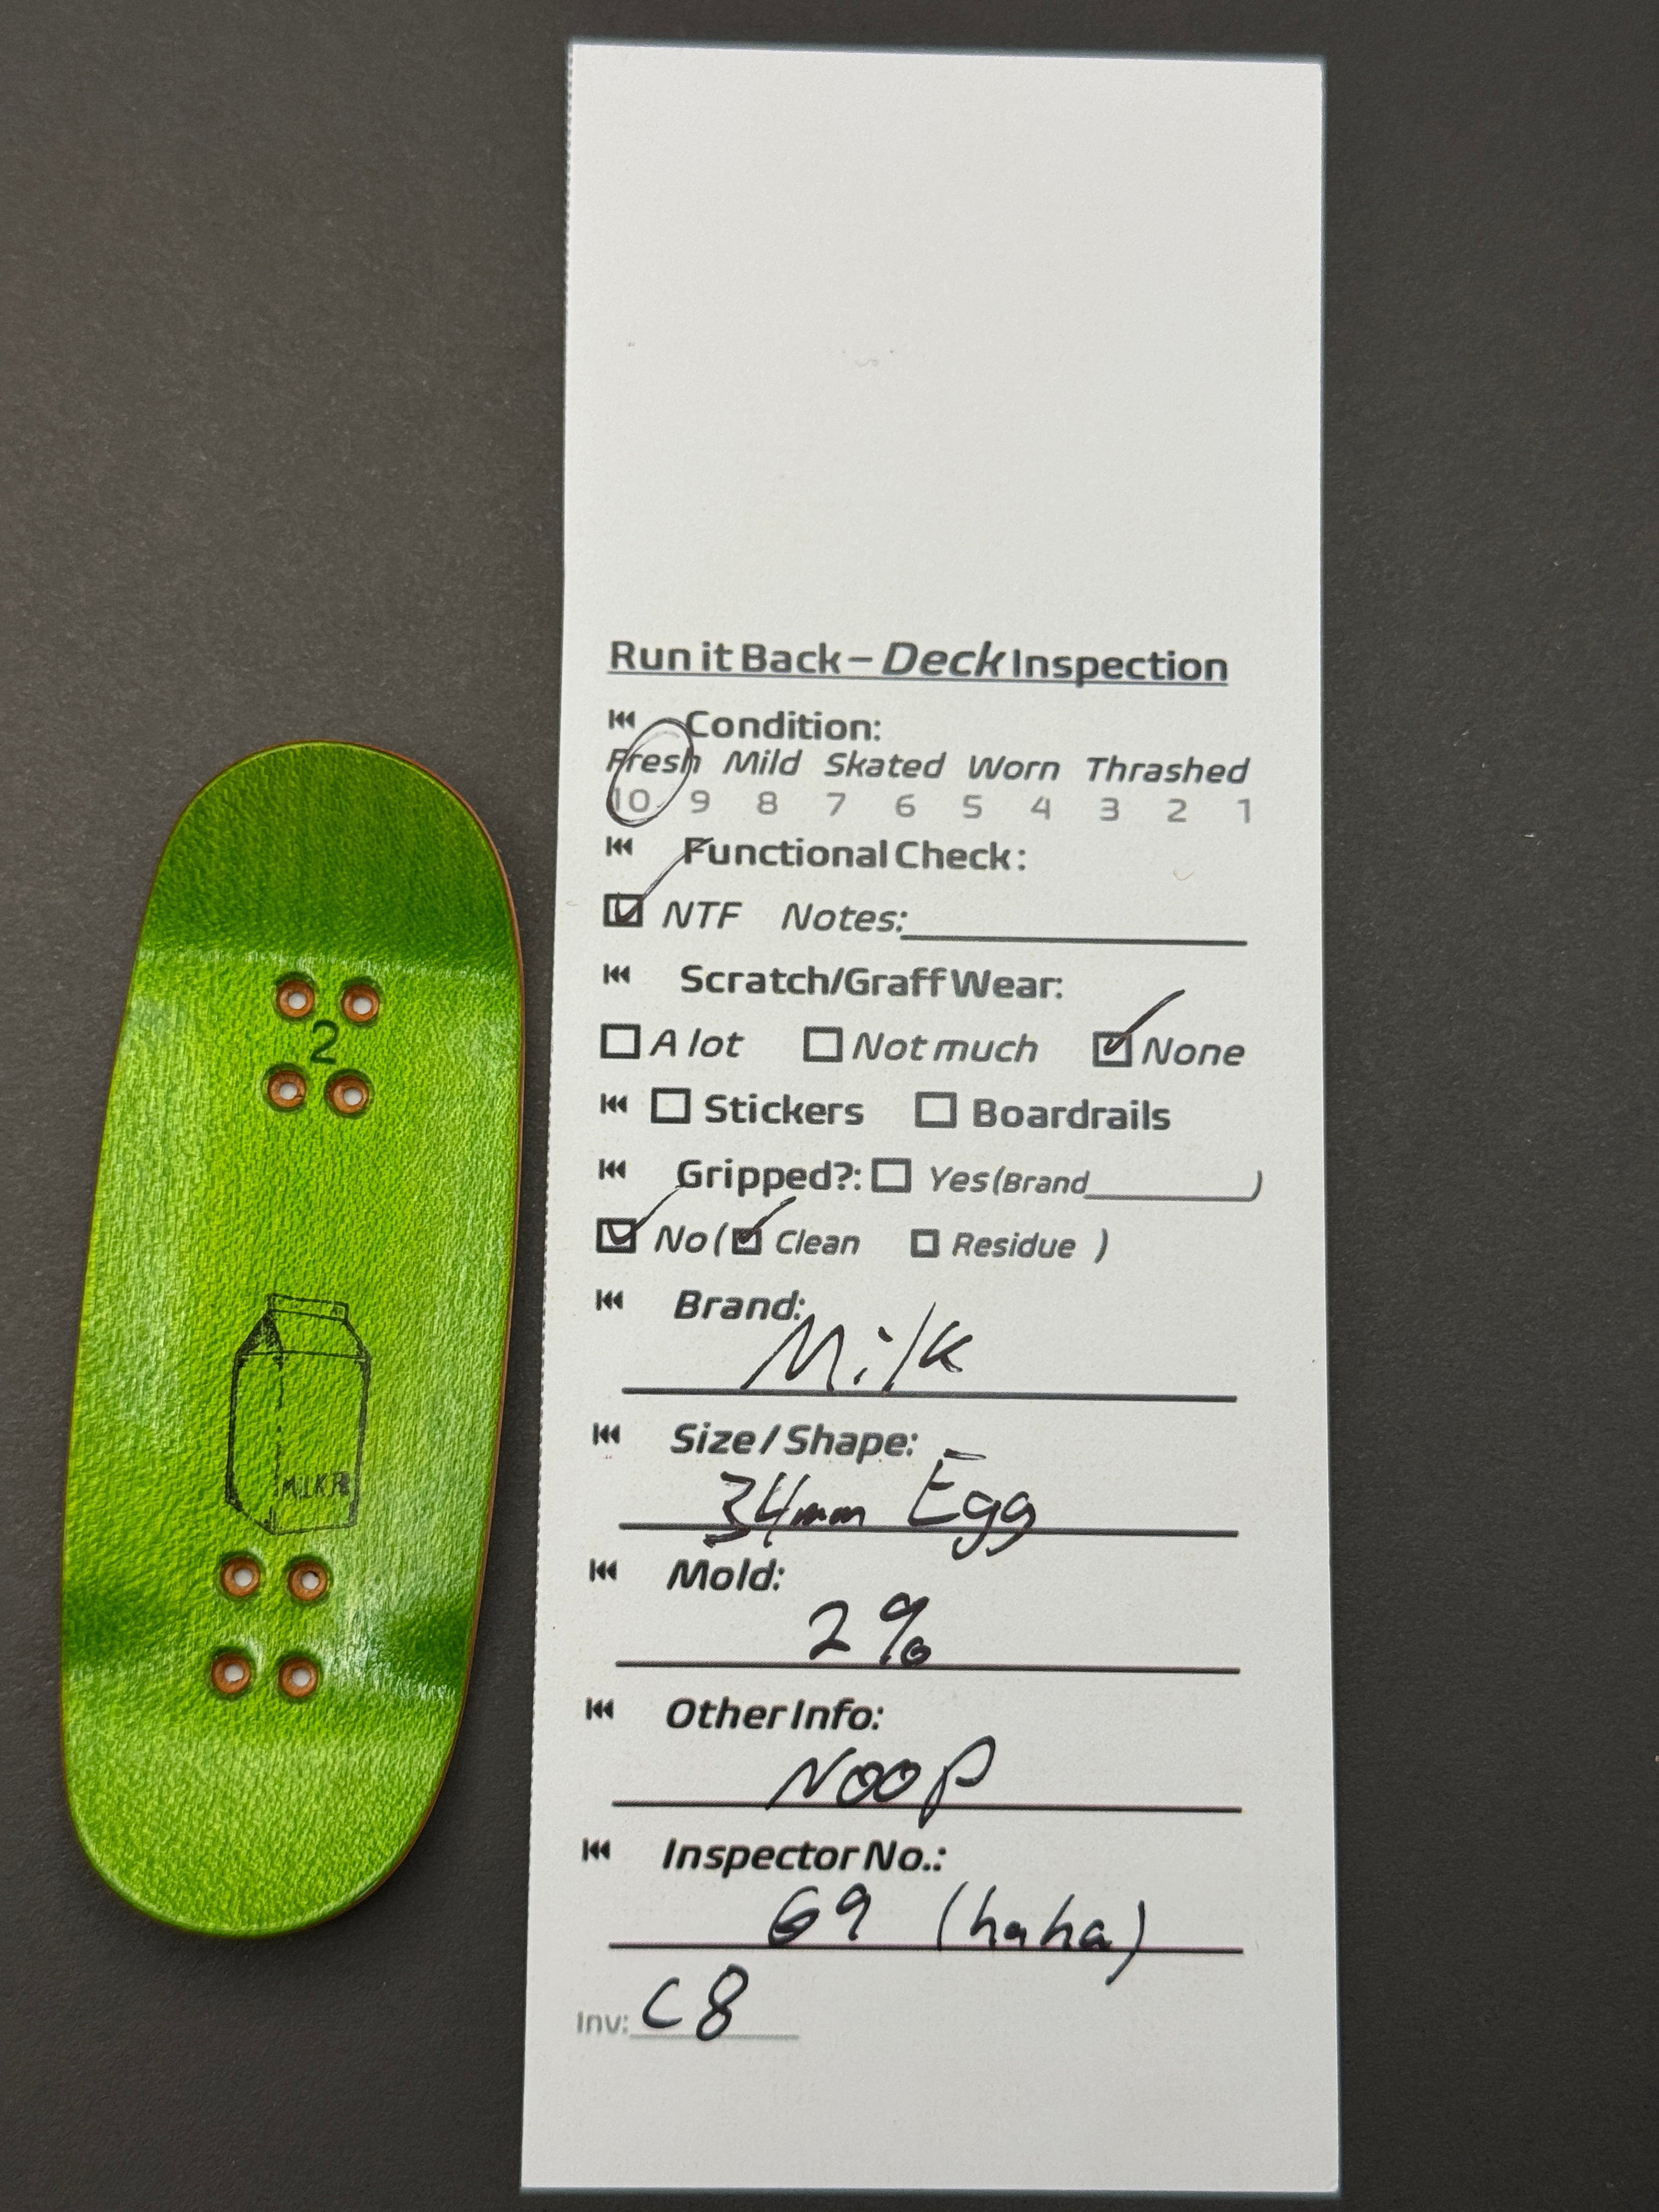 Run it Back – Deck Inspection
Condition:
Fresh Mild Skated Worn Thrashed
10 9 8 7 6 5 4 3 2 1
Functional Check:
NTF Notes:
Scratch/Graff Wear:
A lot Not much None
Stickers Boardrails
Gripped?: Yes (Brand )
No ( Clean Residue )
Brand:
Milk
Size / Shape:
34mm Egg
Mold:
2%
Other Info:
NOOP
Inspector No.:
69 (haha)
Inv: C8
2